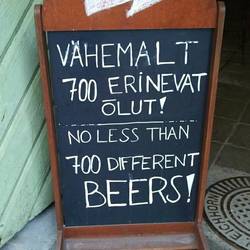 VÄHEMALT
700 ERINEVAT
ÕLUT!
NO LESS THAN
700 DIFFERENT
BEERS!